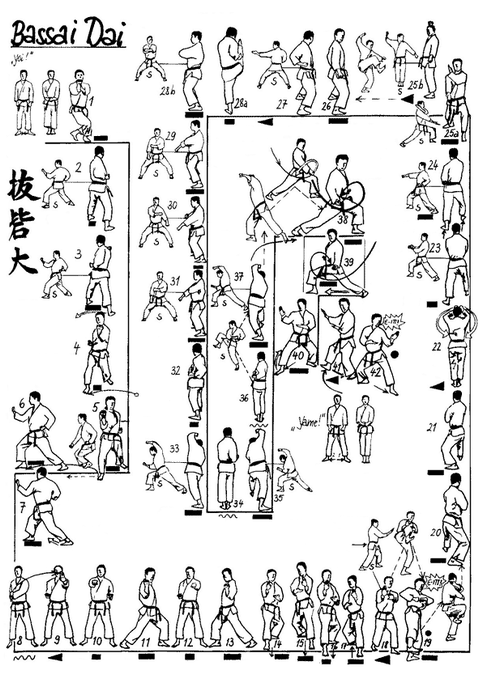 Bassai Dai
„Yoi!"
S
28b
28a
S
27
26
S
25b
1
25a
抜
砦
大
2
S
29
S
24
S
3
S
30
S
38
23
S
39
4
31
S
37
S
40
42
22
32
36
6
5
„Yame!"
21
33
S
34
35
S
7
20
8
9
10
11
12
13
14
15
16
17
18
19